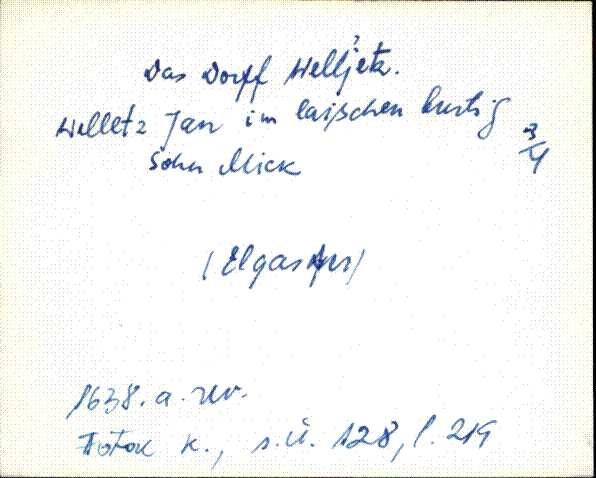 Das Dorff Welljetz.
Welletz Jan im laißchen burtig 3/4
Sohn Mick
(Elgas)
1638. a. rev.
Fotok k., s.ü. 128, l. 219